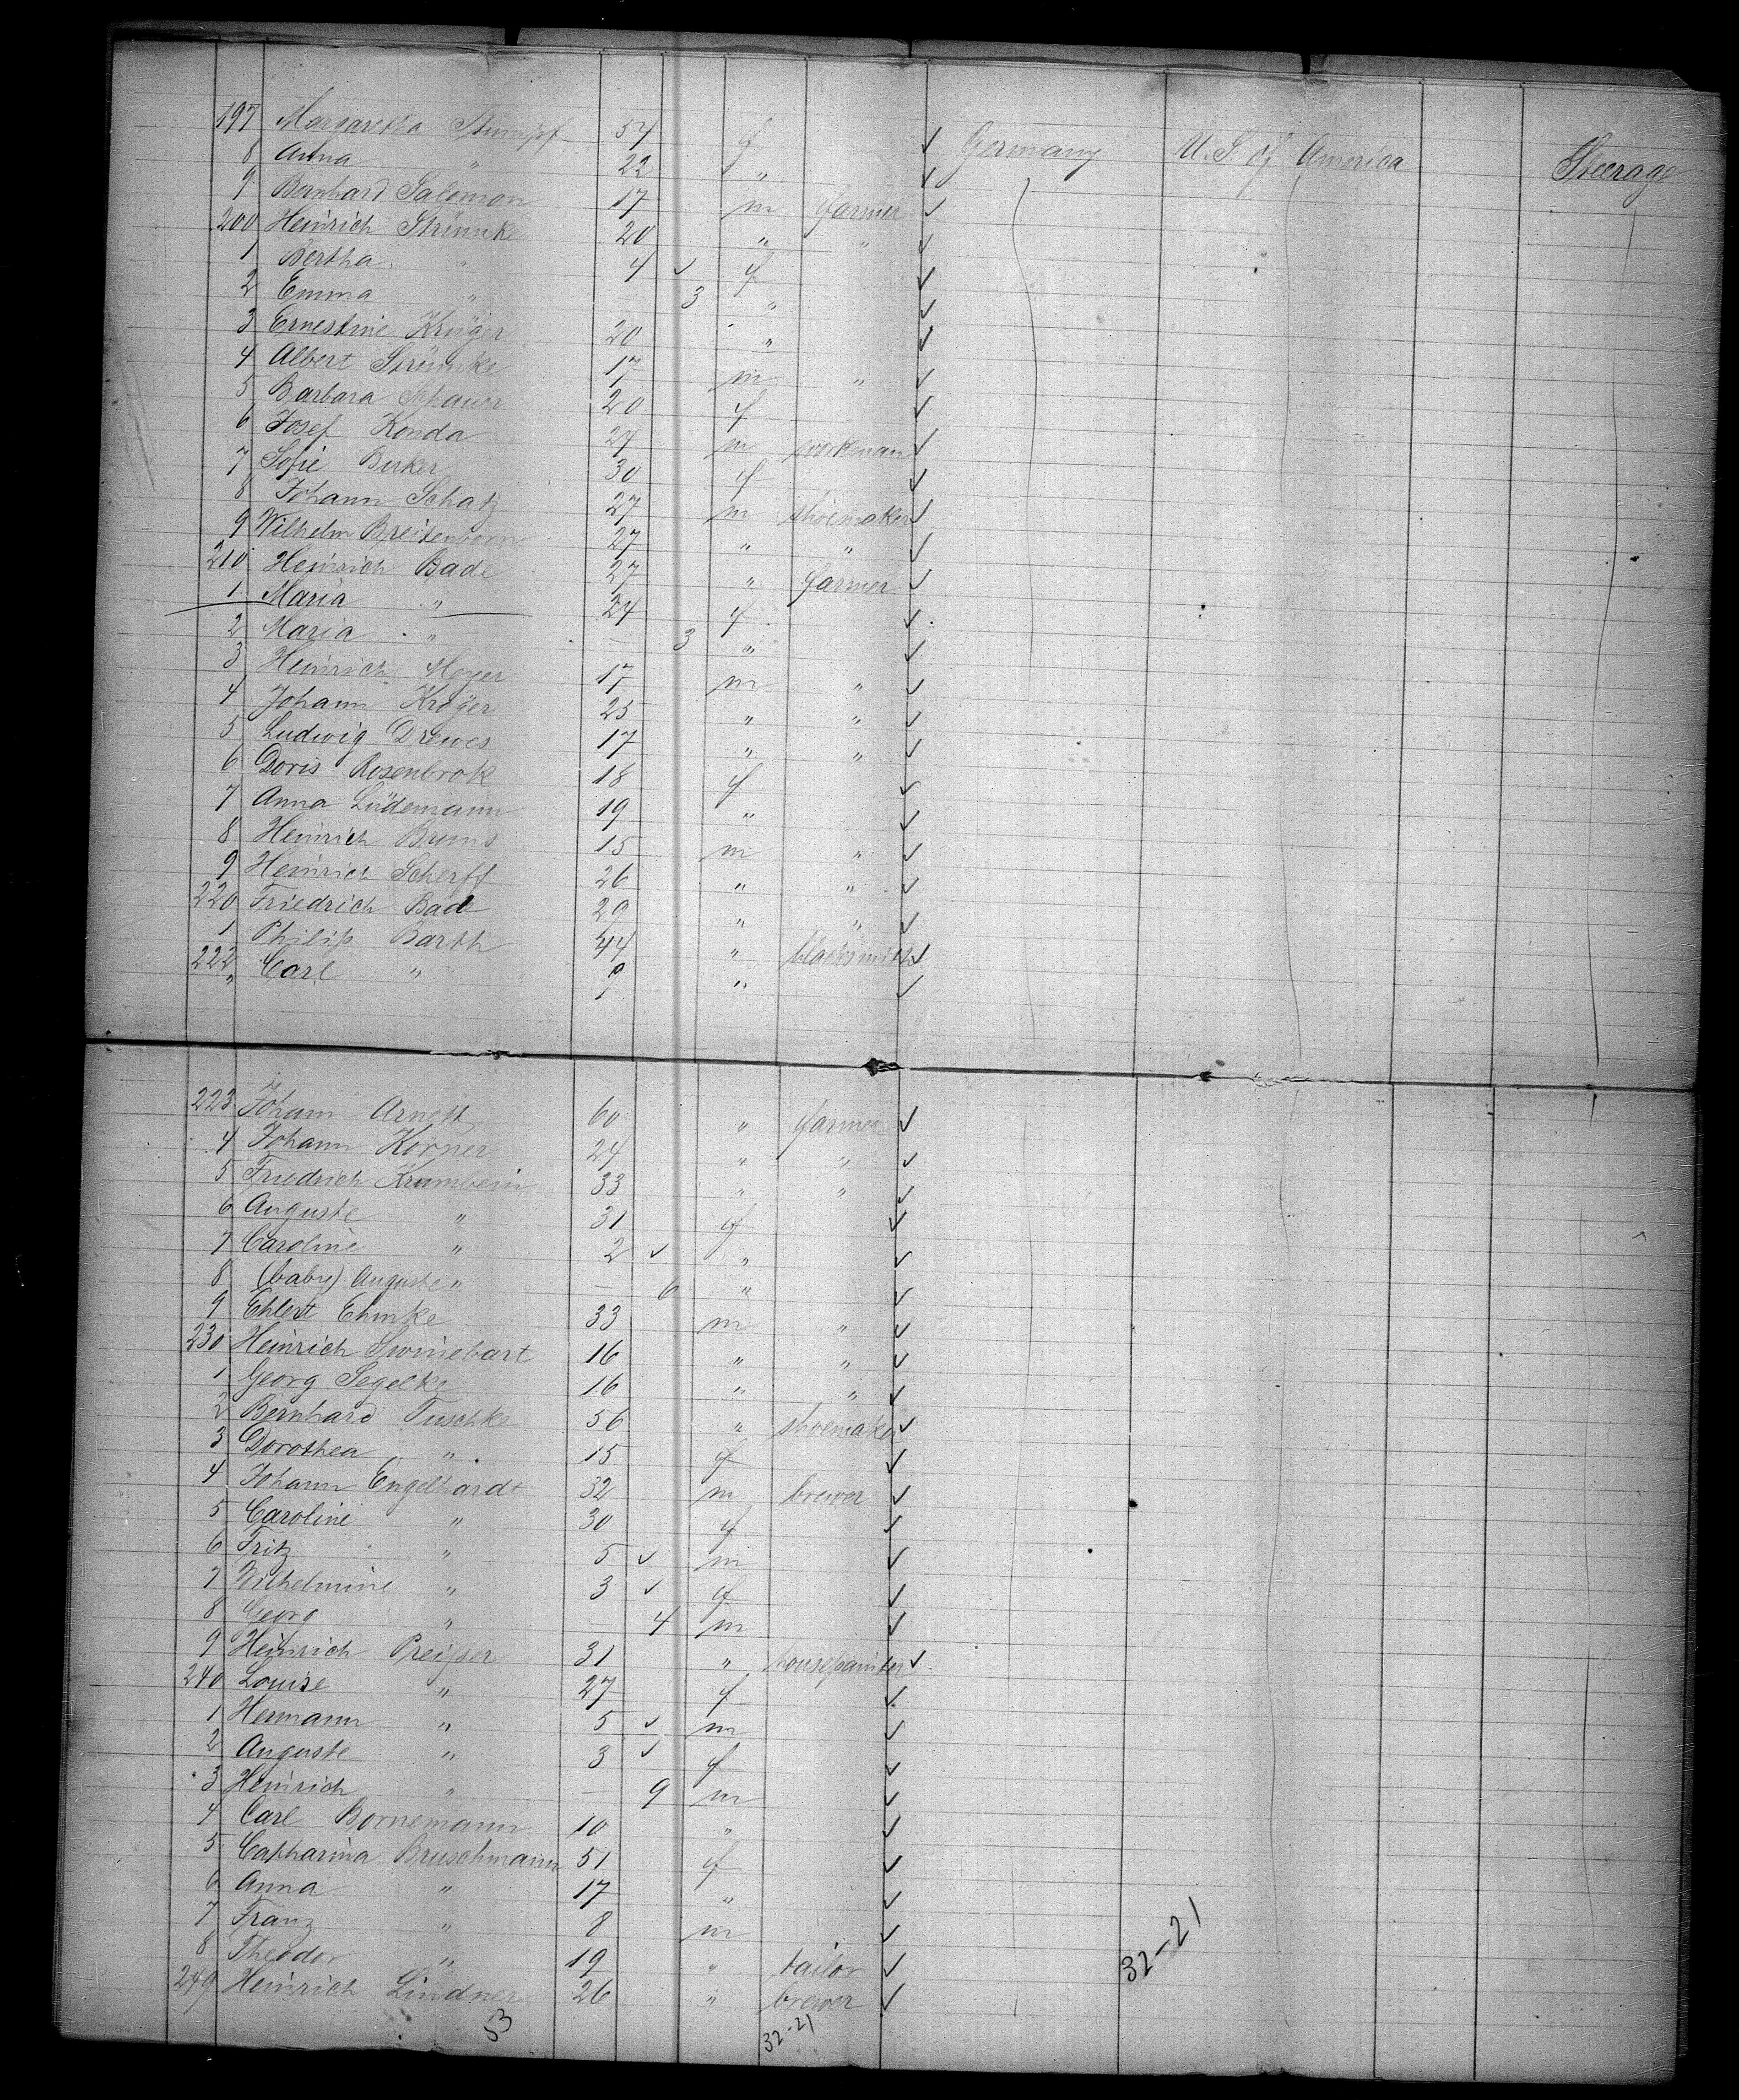 197 Margaretha Stumpf 54 f ✓ Germany U. S. of America Steerage
8 Anna " 22 " ✓
9 Bernhard Salomon 17 m farmer ✓
200 Heinrich Strünnke 20 " " ✓
1 Bertha " 4 ✓ f ✓
2 Emma " — 3 " ✓
3 Ernestine Krüger 20 " ✓
4 Albert Strünnke 17 m " ✓
5 Barbara Schauer 20 f ✓
6 Josef Konda 24 m workman ✓
7 Sofie Buker 30 f ✓
8 Johann Schatz 27 m shoemaker ✓
9 Wilhelm Breitenborn 27 " " ✓
210 Heinrich Bade 27 " farmer ✓
1 Maria " 24 f ✓
2 Maria " — 3 " ✓
3 Heinrich Meyer 17 m " ✓
4 Johann Kröger 25 " " ✓
5 Ludwig Drewes 17 " " ✓
6 Doris Rosenbrok 18 f ✓
7 Anna Lüdemann 19 " ✓
8 Heinrich Bruns 15 m " ✓
9 Heinrich Scherff 26 " " ✓
220 Friedrich Bade 29 " " ✓
1 Philip Barth 44 " blacksmith ✓
222 Carl " 9 " ✓
"
223 Johann Arnelt 60 " farmer ✓
4 Johann Korner 24 " " ✓
5 Friedrich Krumbein 33 " " ✓
6 Auguste " 31 f ✓
7 Caroline " 2 ✓ " ✓
8 (baby) Auguste " — 6 " ✓
9 Ehlert Ehmke 33 m " ✓
230 Heinrich Swinebart 16 " " ✓
1 Georg Segelke 16 " " ✓
2 Bernhard Tuschke 56 " shoemaker ✓
3 Dorothea " 15 f ✓
4 Johann Engelhardt 32 m brewer ✓
5 Caroline " 30 f ✓
6 Fritz " 5 ✓ m ✓
7 Wilhelmine " 3 ✓ f ✓
8 Georg " — 4 m ✓
9 Heinrich Preißer 31 " housepainter ✓
240 Louise " 27 f ✓
1 Hermann " 5 ✓ m ✓
2 Auguste " 3 ✓ f ✓
3 Heinrich " — 9 m ✓
4 Carl Bornemann 10 " ✓
5 Catharina Bruschmann 51 f ✓
6 Anna " 17 " ✓
7 Franz " 8 m ✓
8 Theodor " 19 " tailor ✓
249 Heinrich Lindner 26 " brewer ✓
32-21
53 32-21